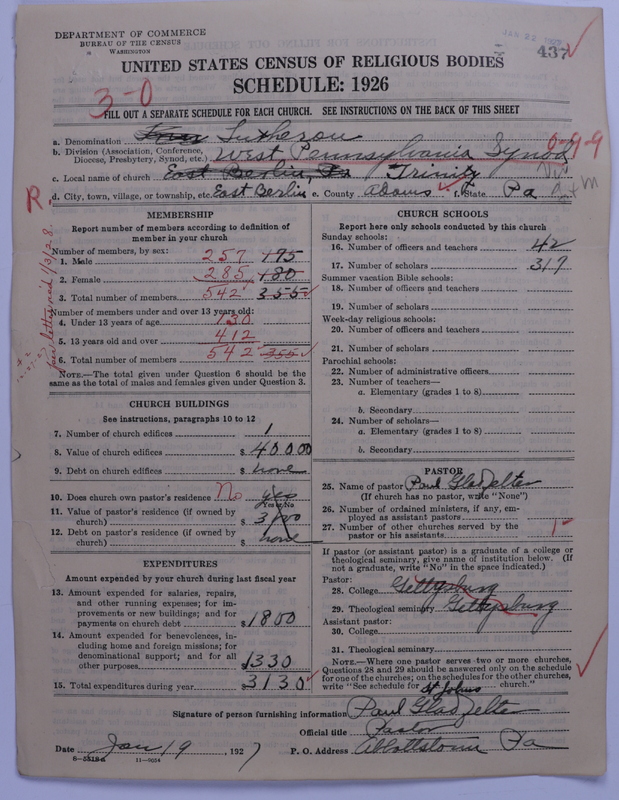 DEPARTMENT OF COMMERCE
BUREAU OF THE CENSUS
WASHINGTON
JAN 22 1927
437
UNITED STATES CENSUS OF RELIGIOUS BODIES
SCHEDULE: 1926
3-0
FILL OUT A SEPARATE SCHEDULE FOR EACH CHURCH. SEE INSTRUCTIONS ON THE BACK OF THIS SHEET
a. Denomination Lutheran
b. Division (Association, Conference, Diocese, Presbytery, Synod, etc.) West Pennsylvania Synod 0-9-9
c. Local name of church East Berlin, Pa Trinity
d. City, town, village, or township, etc. East Berlin e. County Adams f. State Pa
R.
MEMBERSHIP
Report number of members according to definition of
member in your church
Number of members, by sex:
1. Male 257 175
2. Female 285 180
3. Total number of members 542 355
Number of members under and over 13 years old:
4. Under 13 years of age 130
5. 13 years old and over 412
6. Total number of members 542 355
NOTE.—The total given under Question 6 should be the
same as the total of males and females given under Question 3.
CHURCH BUILDINGS
See instructions, paragraphs 10 to 12
7. Number of church edifices 1
8. Value of church edifices $ 40000
9. Debt on church edifices $ none
10. Does church own pastor's residence No yes
Yes or No
11. Value of pastor's residence (if owned by
church) $
12. Debt on pastor's residence (if owned by
church) $ none
EXPENDITURES
Amount expended by your church during last fiscal year
13. Amount expended for salaries, repairs,
and other running expenses; for im-
provements or new buildings; and for
payments on church debt $ 1800
14. Amount expended for benevolences, in-
cluding home and foreign missions; for
denominational support; and for all
other purposes 1330
15. Total expenditures during year $ 3130
CHURCH SCHOOLS
Report here only schools conducted by this church
Sunday schools:
16. Number of officers and teachers 42
17. Number of scholars 319
Summer vacation Bible schools:
18. Number of officers and teachers
19. Number of scholars
Week-day religious schools:
20. Number of officers and teachers
21. Number of scholars
Parochial schools:
22. Number of administrative officers
23. Number of teachers—
a. Elementary (grades 1 to 8)
b. Secondary
24. Number of scholars—
a. Elementary (grades 1 to 8)
b. Secondary
PASTOR
25. Name of pastor Paul Gladfelter
(If church has no pastor, write "None")
26. Number of ordained ministers, if any, em-
ployed as assistant pastors
27. Number of other churches served by the
pastor or his assistants 1
If pastor (or assistant pastor) is a graduate of a college or
theological seminary, give name of institution below. (If
not a graduate, write "No" in the space indicated.)
Pastor:
28. College Gettysburg
29. Theological seminary Gettysburg
Assistant pastor:
30. College
31. Theological seminary
NOTE.—Where one pastor serves two or more churches,
Questions 28 and 29 should be answered only on the schedule
for one of the churches; on the schedules for the other churches,
write "See schedule for St Johns church."
Signature of person furnishing information Paul Gladfelter
Official title Pastor
Date Jan 19, 1927 P. O. Address Abbottstown Pa
11—9034